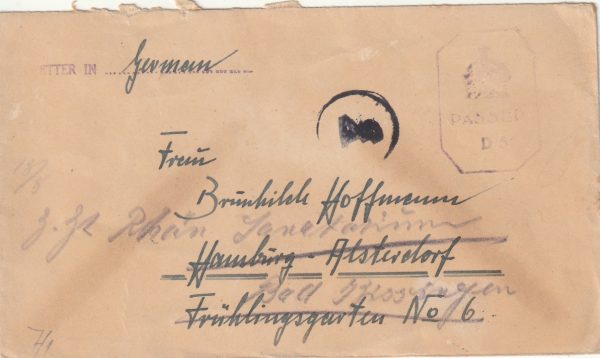 LETTER IN German
PASSED
D 5
18/8
Frau
Brunhilde Hoffmann
z. Zt. Rhön Sanatorium
Hamburg-Alsterdorf
Bad
Frühlingsgarten No 6